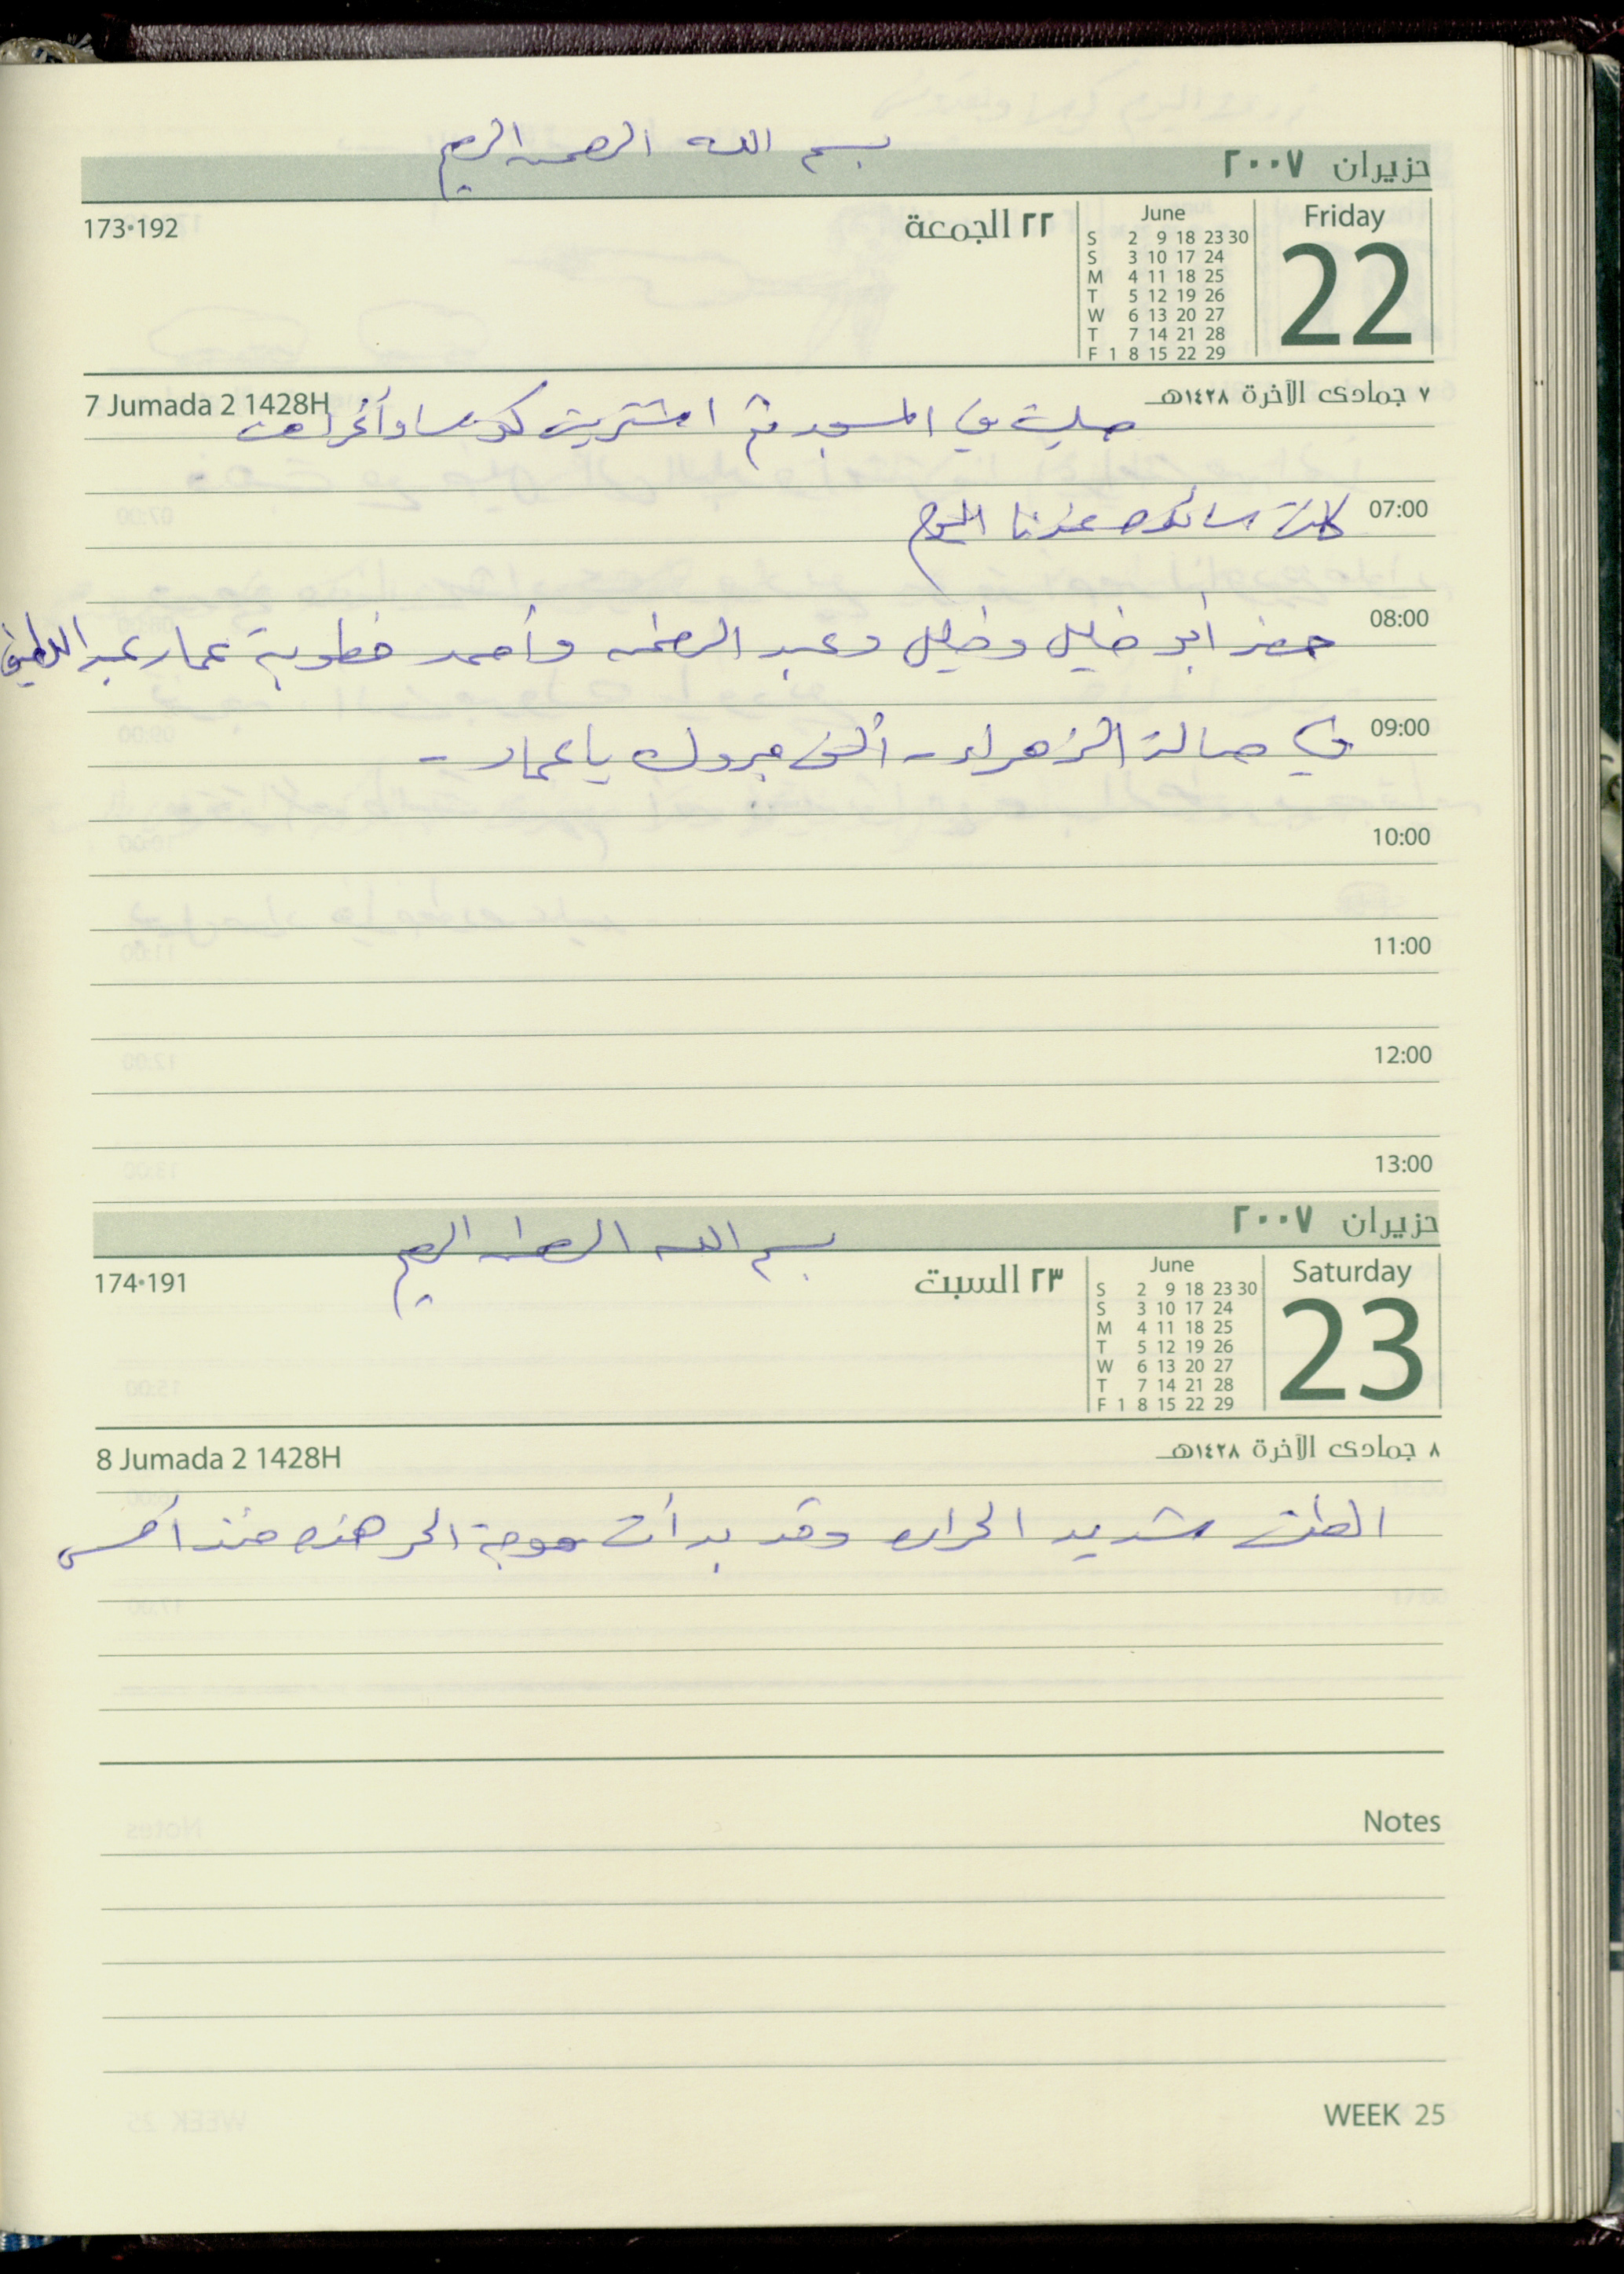 بسم الله الرحمن الرحيم
حزيران ٢٠٠٧
173•192
٢٢ الجمعة
June
S 2 9 18 23 30
S 3 10 17 24
M 4 11 18 25
T 5 12 19 26
W 6 13 20 27
T 7 14 21 28
F 1 8 15 22 29
Friday
22
7 Jumada 2 1428H
٧ جمادى الآخرة ١٤٢٨هـ
صليت في المسجد ثم اشتريت كوسا وأغراض
07:00
كانت سائدة عندنا اليوم
08:00
حضر أبو خليل وخليل وعبد الرحمن وأحمد خطوبة عمار عبد اللطيف
09:00
في صالة الزهراء - ألف مبروك يا عمار -
10:00
11:00
12:00
13:00
حزيران ٢٠٠٧
بسم الله الرحمن الرحيم
174•191
٢٣ السبت
June
S 2 9 18 23 30
S 3 10 17 24
M 4 11 18 25
T 5 12 19 26
W 6 13 20 27
T 7 14 21 28
F 1 8 15 22 29
Saturday
23
8 Jumada 2 1428H
٨ جمادى الآخرة ١٤٢٨هـ
الطقس شديد الحرارة وقد بدأت موجة الحر هذه منذ أمس
Notes
WEEK 25